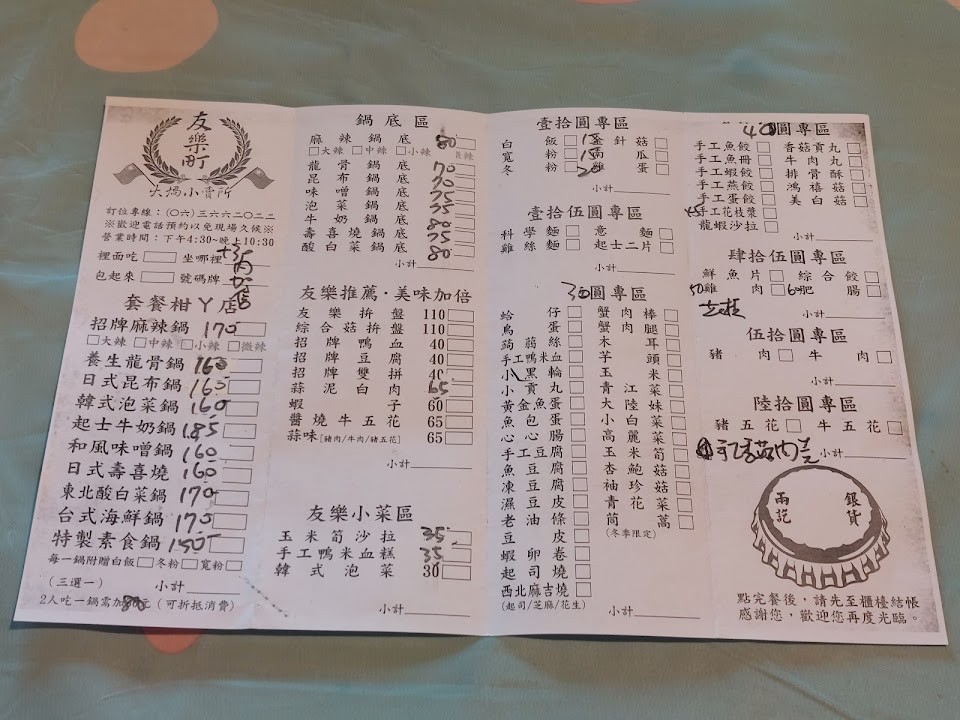 友
樂
町
火鍋小賣所
訂位專線：(〇六)三六六二〇二二
※歡迎電話預約以免現場久候※
營業時間：下午4:30~晚上10:30
裡面吃 坐哪裡
包起來 號碼牌
套餐柑丫店
招牌麻辣鍋 170
大辣 中辣 小辣 微辣
養生龍骨鍋 160
日式昆布鍋 165
韓式泡菜鍋 160
起士牛奶鍋 185
和風味噌鍋 160
日式壽喜燒 160
東北酸白菜鍋 170
台式海鮮鍋 170
特製素食鍋 150
每一鍋附贈白飯 冬粉 寬粉
(三選一) 小計
2人吃一鍋需加80元(可折抵消費)
鍋底區
麻辣鍋底 80
大辣 中辣 小辣 微辣
龍骨鍋底 70
昆布鍋底 75
味噌鍋底 75
泡菜鍋底 75
牛奶鍋底 80
壽喜燒鍋底 75
酸白菜鍋底 80
小計
友樂推薦·美味加倍
友樂拚盤 110
綜合菇拚盤 110
招牌鴨血 40
招牌豆腐 40
招牌雙拼 40
蒜泥白肉 65
蝦子 60
醬燒牛五花 65
蒜味[豬肉/牛肉/豬五花] 65
小計
友樂小菜區
玉米筍沙拉 35
手工鴨米血糕 35
韓式泡菜 30
小計
壹拾圓專區
白飯 15 金針菇
寬粉 15 南瓜
冬粉 20 雞蛋
小計
壹拾伍圓專區
科學麵 意麵
雞絲麵 起士二片
小計
30圓專區
蛤仔 蟹肉棒
鳥蛋 蟹肉腿
蒟蒻絲 木耳
手工鴨米血 芋頭
小黑輪 玉米
小貢丸 青江菜
黃金魚蛋 大陸妹
魚包蛋 小白菜
心心腸 高麗菜
手工豆腐 玉米筍
魚豆腐 杏鮑菇
凍豆腐 袖珍菇
濕豆皮 青花菜
老油條 茼蒿
豆皮 (冬季限定)
蝦卵卷
起司燒
西北麻吉燒
(起司/芝麻/花生) 小計
40圓專區
手工魚餃 香菇貢丸
手工魚冊 牛肉丸
手工蝦餃 排骨酥
手工燕餃 鴻禧菇
手工蛋餃 美白菇
45手工花枝漿
龍蝦沙拉 小計
肆拾伍圓專區
鮮魚片 綜合餃
50雞肉 60肥腸
小計
伍拾圓專區
豬肉 牛肉
小計
陸拾圓專區
豬五花 牛五花
小計
兩訖
銀貨
點完餐後，請先至櫃檯結帳
感謝您，歡迎您再度光臨。